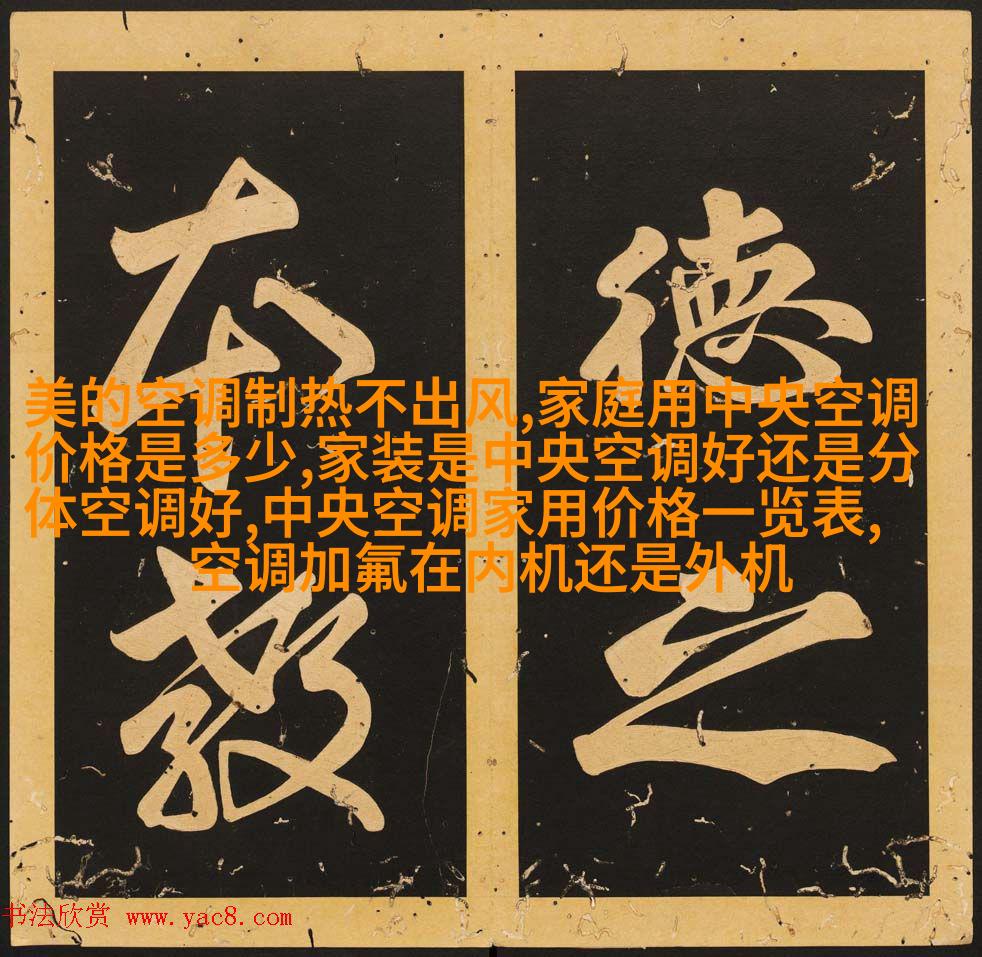 德之
本教
美的空调制热不出风,家庭用中央空调
价格是多少,家装是中央空调好还是分
体空调好,中央空调家用价格一览表,
空调加氟在内机还是外机
书法欣赏 www.yac8.com